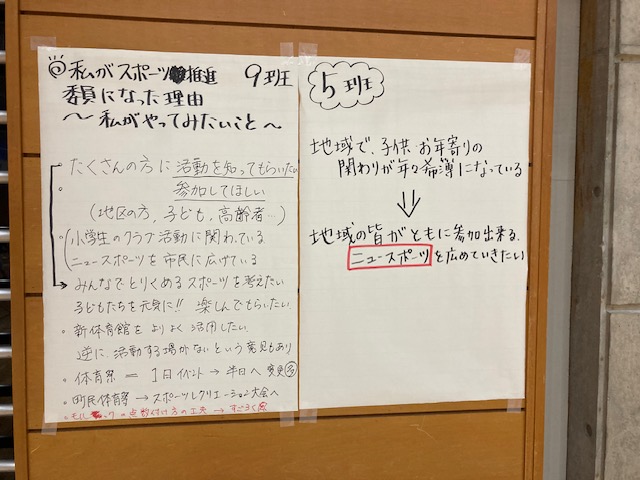 私がスポーツ推進 9班
委員になった理由
〜私がやってみたいこと〜
・たくさんの方に活動を知ってもらいたい
・参加してほしい
(地区の方、子ども、高齢者…)
・小学生のクラブ活動に関わっている
ニュースポーツを市民に広げている
→みんなでとりくめるスポーツを考えたい
子どもたちを元気に!! 楽しんでもらいたい
・新体育館をよりよく活用したい
逆に、活動する場がないという意見もあり
・体育祭 = 1日イベント→半日へ 意見多
・町民体育祭→スポーツレクリエーション大会へ
・モルック の点数付け方の工夫 → すごろく
5班
地域で、子供・お年寄りの
関わりが年々希薄になっている
⇓
地域の皆がともに参加出来る、
ニュースポーツを広めていきたい